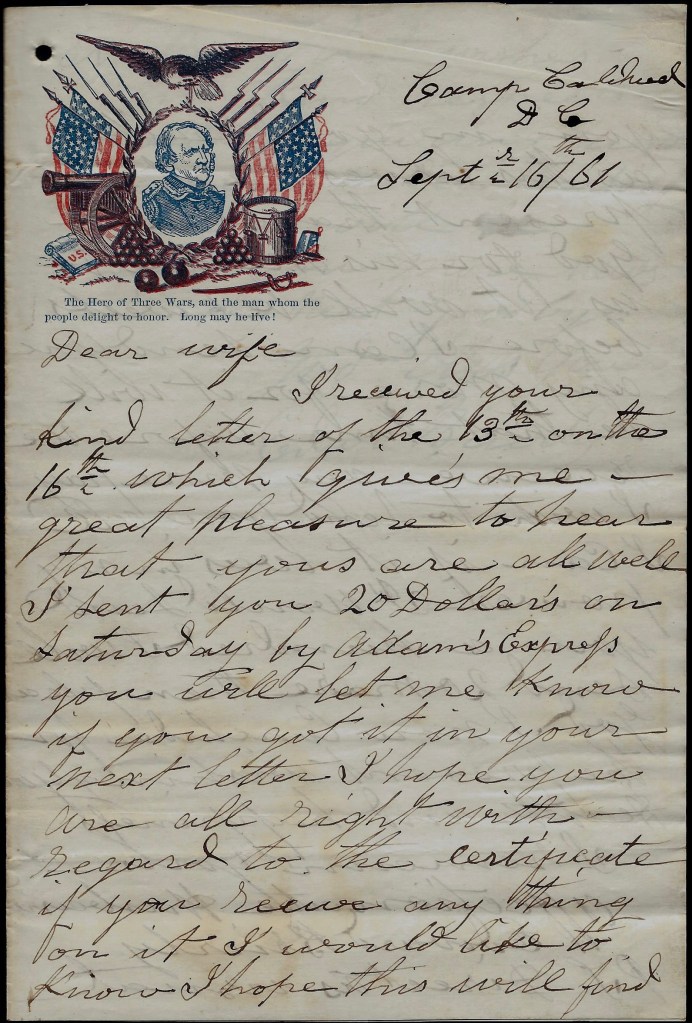 Camp Caldwell
D C
Sept 16th/61
U.S.
The Hero of Three Wars, and the man whom the
people delight to honor. Long may he live!
Dear wife
I received your
kind letter of the 13th on the
16th which give's me –
great pleasure to hear
that yous are all well
I sent you 20 Dollar's on
saturday by Adam's Express
you will let me know
if you got it in your
next letter I hope you
are all right with –
regard to the certificate
if you receve any thing
on it I would like to
know I hope this will find